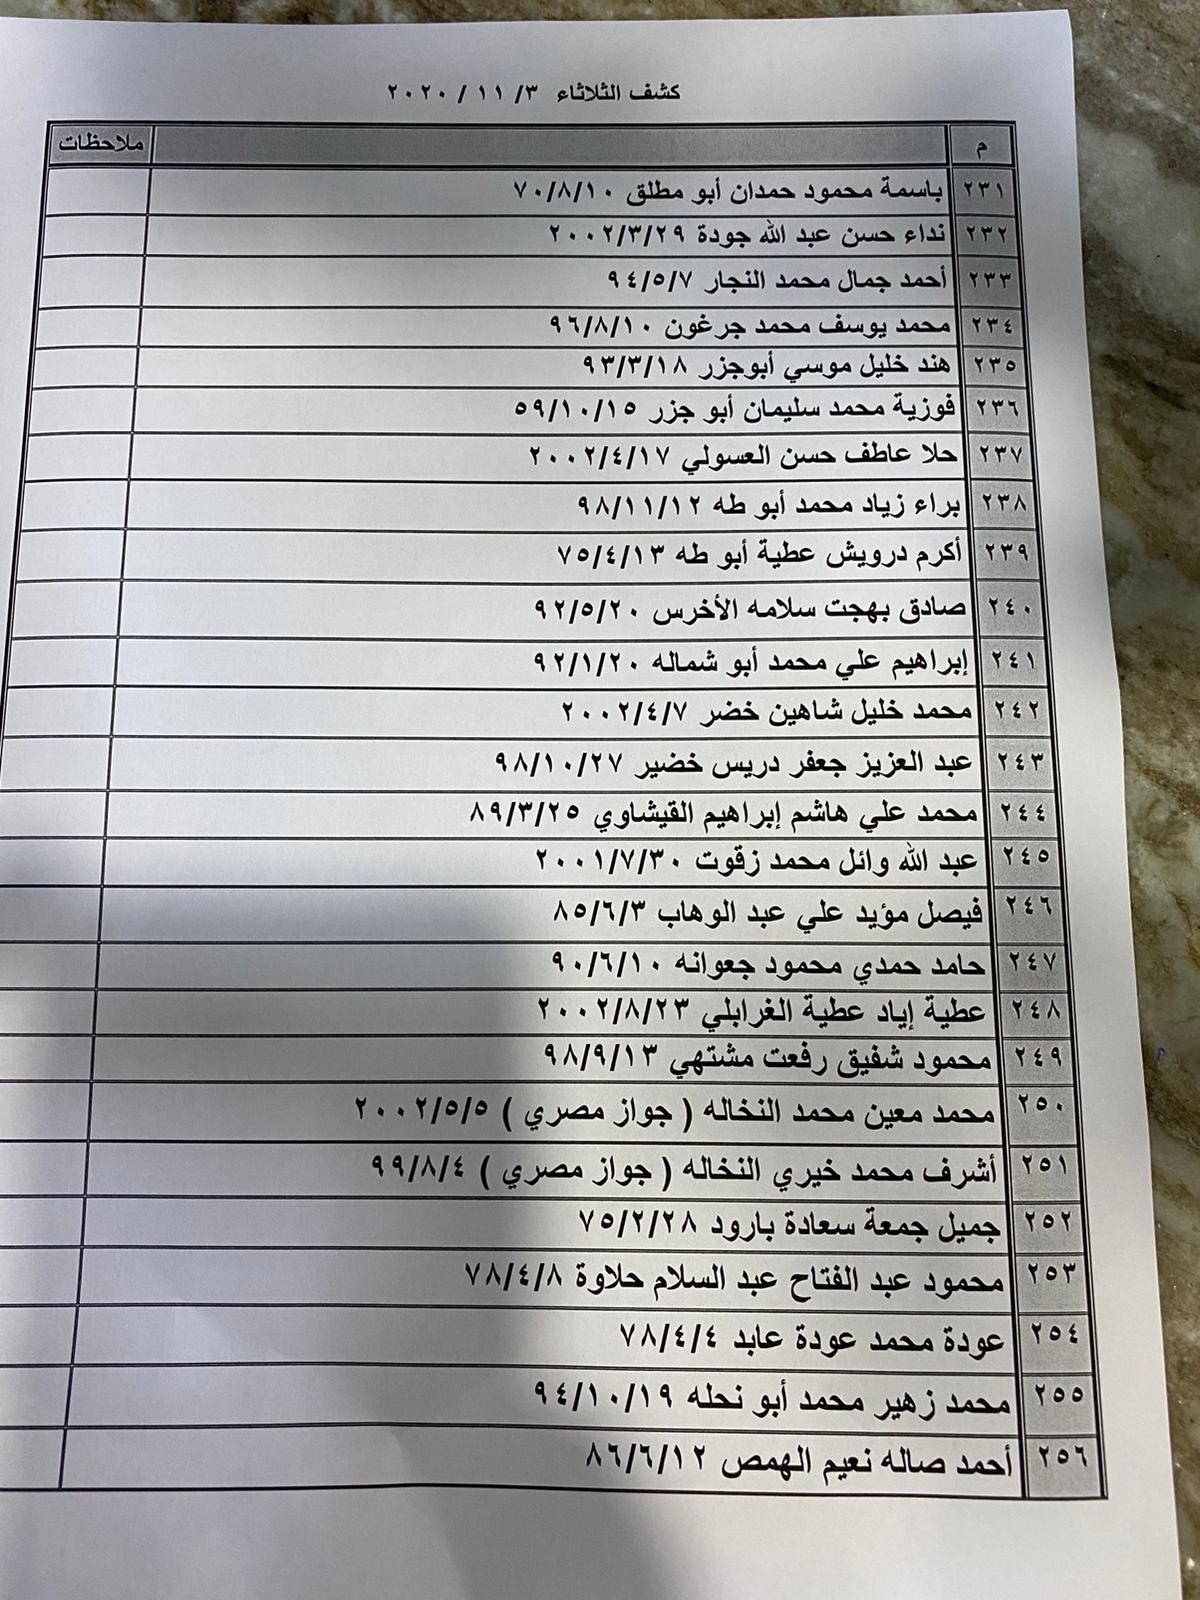 كشف الثلاثاء ٣/ ١١ / ٢٠٢٠
م ملاحظات
٢٣١ باسمة محمود حمدان أبو مطلق ٧٠/٨/١٠
٢٣٢ نداء حسن عبد الله جودة ٢٠٠٢/٣/٢٩
٢٣٣ أحمد جمال محمد النجار ٩٤/٥/٧
٢٣٤ محمد يوسف محمد جرغون ٩٦/٨/١٠
٢٣٥ هند خليل موسي أبوجزر ٩٣/٣/١٨
٢٣٦ فوزية محمد سليمان أبو جزر ٥٩/١٠/١٥
٢٣٧ حلا عاطف حسن العسولي ٢٠٠٢/٤/١٧
٢٣٨ براء زياد محمد أبو طه ٩٨/١١/١٢
٢٣٩ أكرم درويش عطية أبو طه ٧٥/٤/١٣
٢٤٠ صادق بهجت سلامه الأخرس ٩٢/٥/٢٠
٢٤١ إبراهيم علي محمد أبو شماله ٩٢/١/٢٠
٢٤٢ محمد خليل شاهين خضر ٢٠٠٢/٤/٧
٢٤٣ عبد العزيز جعفر دريس خضير ٩٨/١٠/٢٧
٢٤٤ محمد علي هاشم إبراهيم القيشاوي ٨٩/٣/٢٥
٢٤٥ عبد الله وائل محمد زقوت ٢٠٠١/٧/٣٠
٢٤٦ فيصل مؤيد علي عبد الوهاب ٨٥/٦/٣
٢٤٧ حامد حمدي محمود جعوانه ٩٠/٦/١٠
٢٤٨ عطية إياد عطية الغرابلي ٢٠٠٢/٨/٢٣
٢٤٩ محمود شفيق رفعت مشتهي ٩٨/٩/١٣
٢٥٠ محمد معين محمد النخاله ( جواز مصري ) ٢٠٠٢/٥/٥
٢٥١ أشرف محمد خيري النخاله ( جواز مصري ) ٩٩/٨/٤
٢٥٢ جميل جمعة سعادة بارود ٧٥/٢/٢٨
٢٥٣ محمود عبد الفتاح عبد السلام حلاوة ٧٨/٤/٨
٢٥٤ عودة محمد عودة عابد ٧٨/٤/٤
٢٥٥ محمد زهير محمد أبو نحله ٩٤/١٠/١٩
٢٥٦ أحمد صاله نعيم الهمص ٨٦/٦/١٢